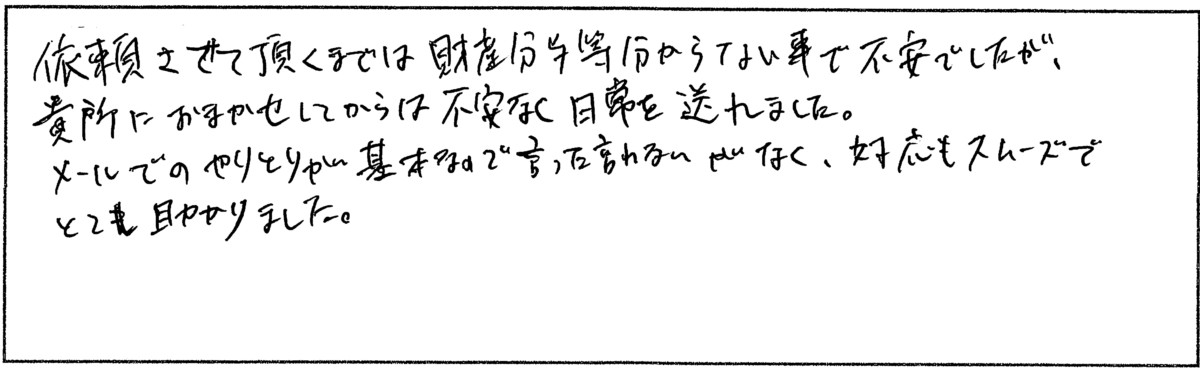 依頼させて頂くまでは財産分与等分からない事で不安でしたが、
貴所におまかせしてからは不安なく日常を送れました。
メールでのやりとりが基本なので言った言わないがなく、対応もスムーズで
とても助かりました。